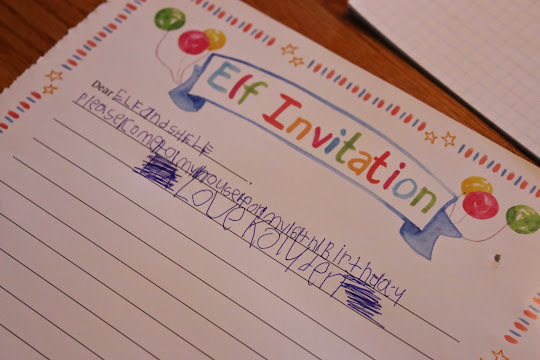 Elf Invitation
Dear ELFandSHELF
please come to my house for my Birthday
LOVE